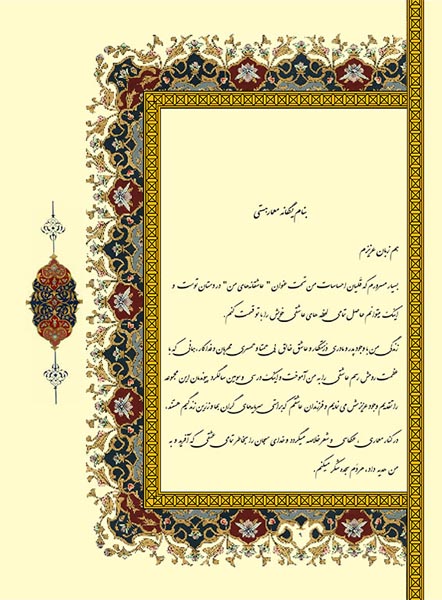 بنام یگانه معمار هستی
هم زبان عزیزم
بسیار مسرورم که غلیان احساسات من تحت عنوان " عاشقانه‌های من" در دستان توست و
اینک میتوانم حاصل تمامی لحظه های عاشقی خویش را با تو قسمت کنم.
زندگی من با وجود پدر و مادری فرهیختگار و عاشق خالق بی همتا و همسری مهربان و فداکار، جانی که با
عظمت روحش رسم عاشقی را به من آموخت و اینک در سی و سومین سالگرد پیوندمان این مجموعه
را تقدیم وجود عزیزش می نمایم و فرزندان عاشقم که براستی سرمایه‌های گران بها و زرین زندگیم هستند،
در کنار معماری ، عکاسی و شعر خلاصه میگردد و خدای سبحان را بخاطر تمامی عشقی که آفرید و به
من هدیه داد، هر دم سجده شکر میکنم.